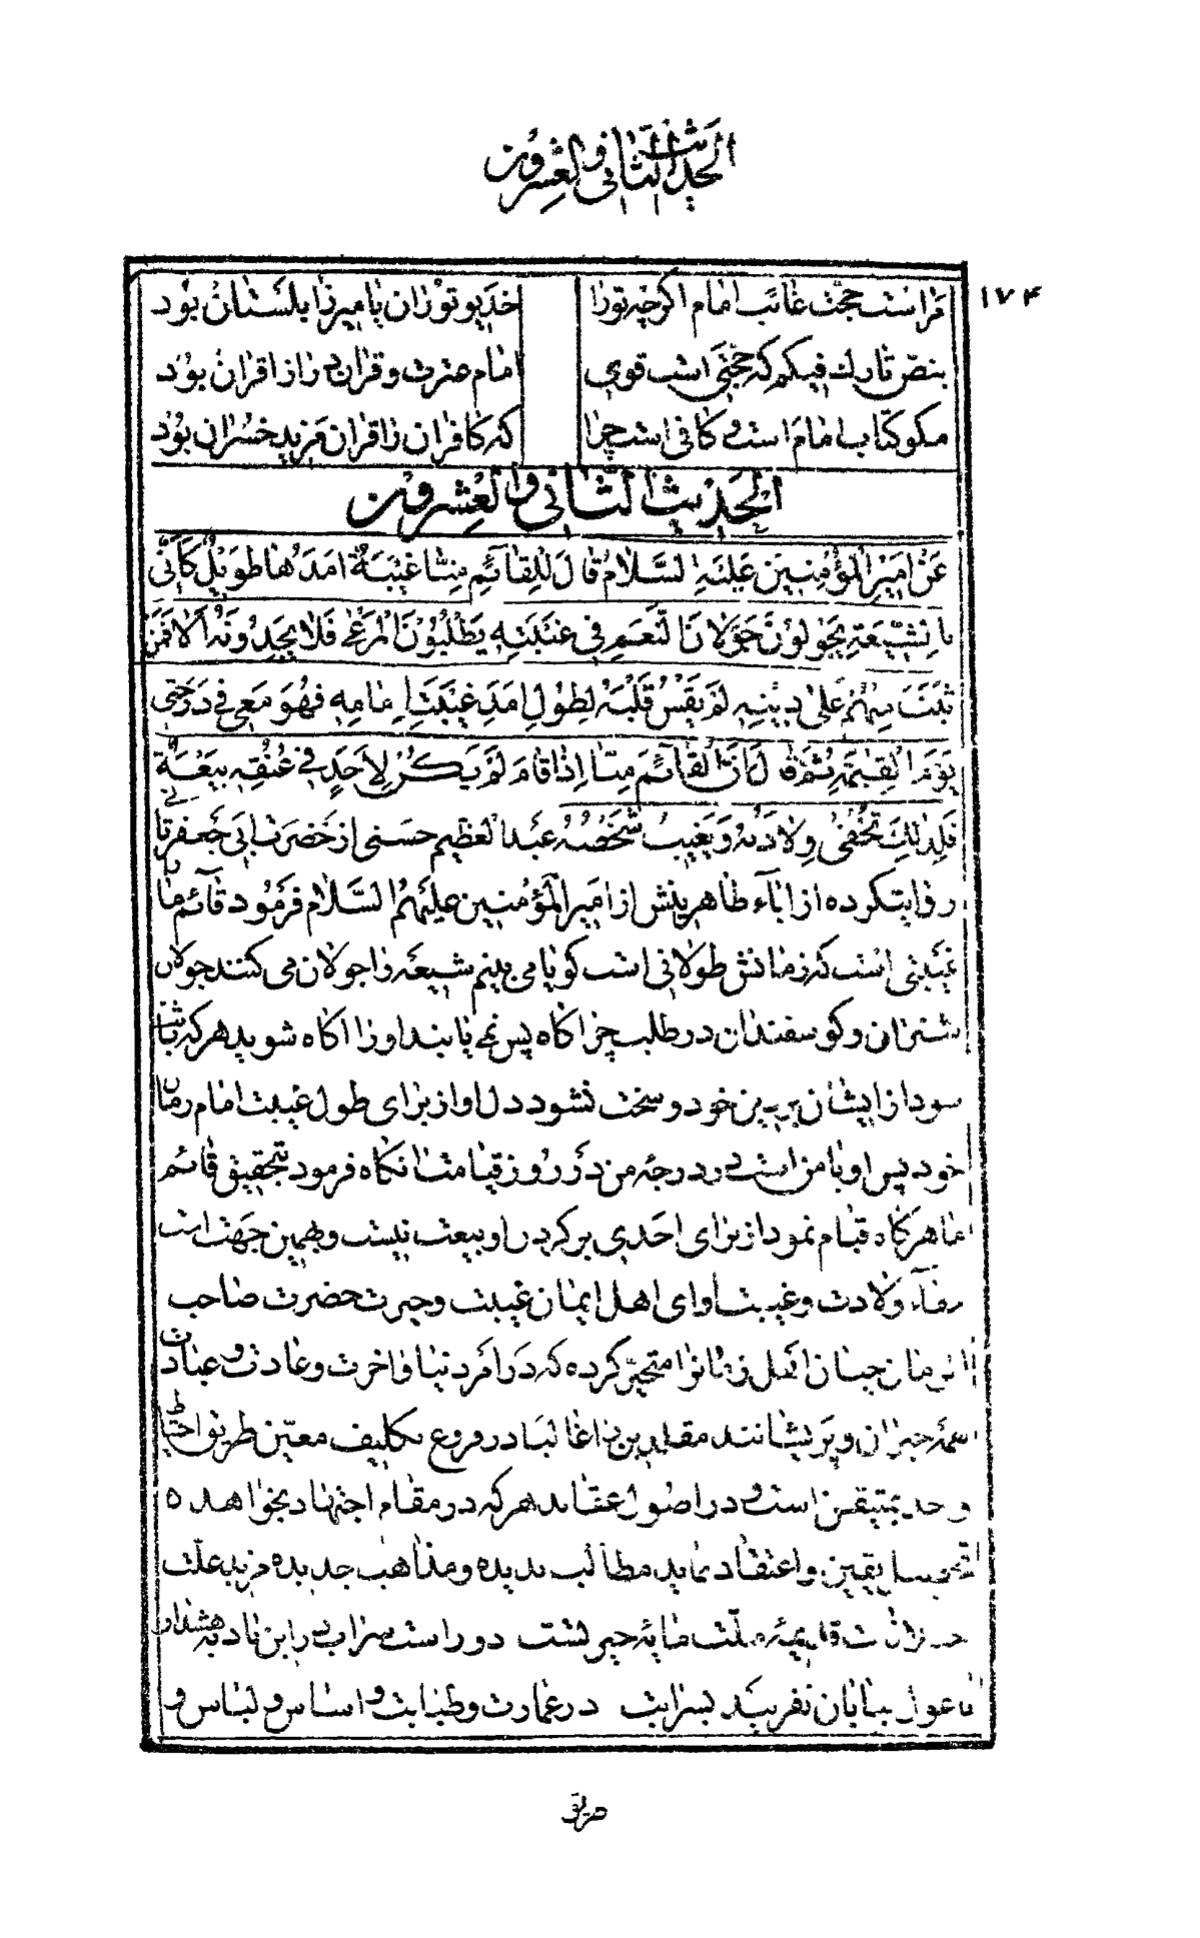 الحدیث الثانی والعشرون
۱۷۴
مراست حجت غائب امام اگرچه تورا خدیو توران یا میرزا بلستان بود
بنص تارك فیکم که حجتی است قوی امام عترت و قران دراز اقران بود
مکو کتاب امام است و کافی است چرا که کافران زا قران مزید خسران بود
الحَدیث الثّانی وَالعِشرون
عَنْ اَمیرِ المُؤْمِنینَ عَلَیْهِ السَّلامُ قالَ لِلقائِمِ مِنّا غَیْبَةٌ اَمَدُها طَویلٌ کَاَنّی
بِالشّیعَةِ یَجُولُونَ جَوَلانَ النَّعَمِ فی غَیْبَتِهِ یَطْلُبُونَ الْمَرْعی فَلا یَجِدُونَهُ اَلا فَمَنْ
ثَبَتَ مِنْهُمْ عَلی دینِهِ لَمْ یَقْسُ قَلْبُهُ لِطُولِ اَمَدِ غَیْبَةِ اِمامِهِ فَهُوَ مَعی فی دَرَجَتی
یَوْمَ الْقِیمَةِ ثُمَّ قالَ اِنَّ الْقائِمَ مِنّا اِذا قامَ لَمْ یَکُنْ لِاَحَدٍ فی عُنُقِهِ بَیْعَةٌ
فَلِذلِكَ تُخْفی وِلادَتُهُ وَ یَغیبُ شَخْصُهُ عبد العظیم حسنی از حضرت ابی جعفر ثانی
روایت کرده از اباء طاهرینش از امیر المؤمنین علیهم السلام فرمود قائم ما را
غیبتی است که زمانش طولانی است کویا می بینم شیعه را جولان می کنند جولان
شتران و کوسفندان در طلب چراکاه پس نمی یابند او را اکاه شوید هر که ثابت
سود از ایشان بر دین خود و سخت نشود دل او از برای طول غیبت امام زمان
خود پس او با من است در درجه من در روز قیامت انکاه فرمود بتحقیق قائم
ما هرکاه قیام نمود از برای احدی بر کردن او بیعت نیست و بهمین جهت است
خفاء ولادت و غیبت او ای اهل ایمان غیبت و حیرت حضرت صاحب
الزمان چنان اهل زمانرا متحیر کرده که در امر دنیا و اخرت و عادت و عبادت
همه حیران و پریشانند مقلدین را غالبا در فروع تکلیف معین طریق احتیاط
و حد متیقن است و در اصول عقاید هر که در مقام اجتهاد بخواهد
تحصیل یقین و اعتقاد نماید مطالب بدیده و مذاهب جدیده مزید علت
قدیمه ملت مایه حیرتست دور است سراب در این بادیه هشدار
تا غول بیابان نفریبد بسرابت در عمارت و طبابت و اساس و لباس و
طریق